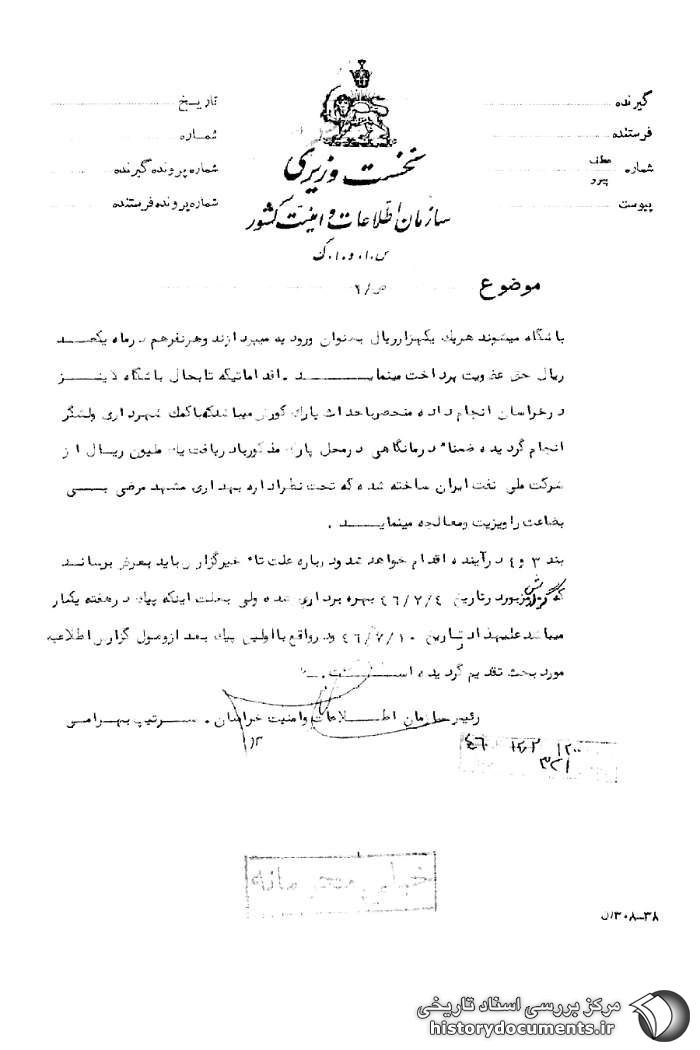 گیرنده
تاریخ
فرستنده
شماره
شماره عطف
پیرو
شماره پرونده گیرنده
پیوست
شماره پرونده فرستنده
نخست وزیری
سازمان اطلاعات و امنیت کشور
س.ا.و.ا.ک
موضوع
ص/۲
باشگاه میشوند هریک یکهزارریال بعنوان ورودیه میپردازند وهرنفرهم درماه یکصد
ریال حق عضویت پرداخت مینماید . اقداماتیکه تابحال باشگاه لاینز
درخراسان انجام داده منحصرباحداث پارک کورش میباشدکه باکمک شهرداری ولشگر
انجام گردیده ضمناً درمانگاهی درمحل پارک مذکوربادریافت یک ملیون ریال از
شرکت ملی نفت ایران ساخته شده که تحت نظراداره بهداری مشهد مرضی بی
بضاعت را ویزیت ومعالجه مینماید .
بند ۳ و ٤ درآینده اقدام خواهد شد درباره علت تاخیرگزارش باید بعرض برساند
که گزارش مزبور درتاریخ ٤٦/٧/٤ بهره برداری شده ولی بعلت اینکه پیک درهفته یکبار
میباشد علیهذا درتاریخ ٤٦/٧/١٠ ودرواقع بااولین پیک بعد ازوصول گزارش اطلاعیه
مورد بحث تقدیم گردیده است .
رئیس سازمان اطلاعات وامنیت خراسان . سرتیپ بهرامی
خیلی محرمانه
۳۸-۳۰۸/ن
مرکز بررسی اسناد تاریخی
historydocuments.ir